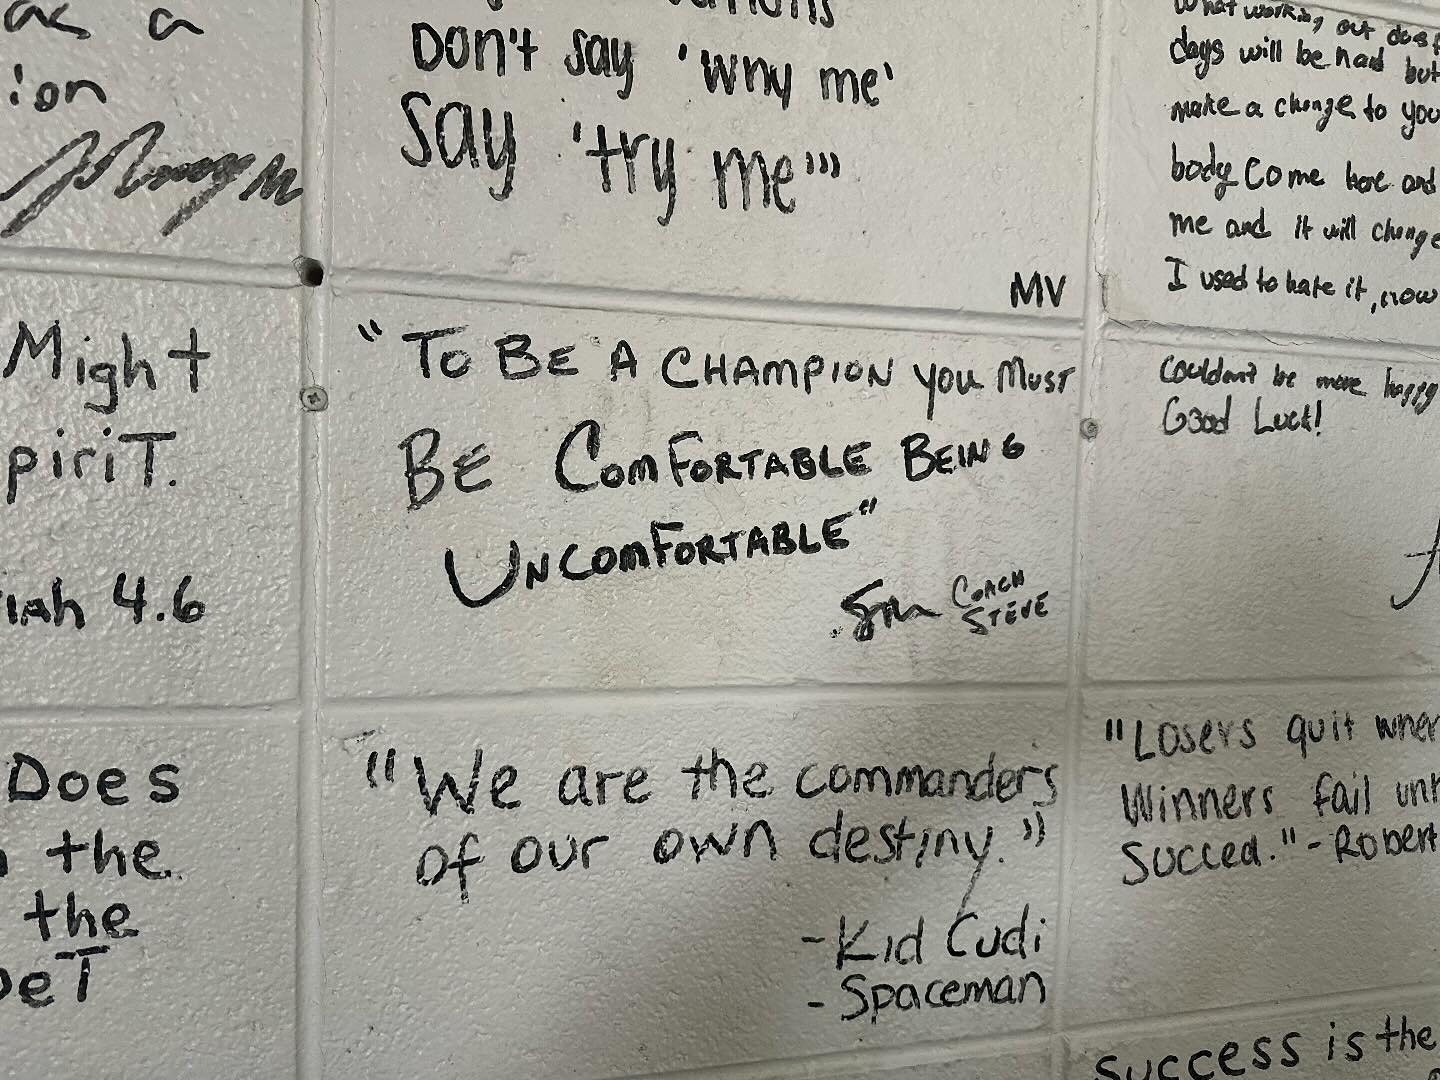 as a
ion
Don't say 'why me'
say 'try me'"
MV
What working out does
days will be hard but
make a change to you
body come here and
me and it will change
I used to hate it, now
couldn't be more happy
Good Luck!
Might
piriT.
iah 4.6
"To Be A CHAMPION you Must
Be ComFORTABLE BEING
UNCOMFORTABLE"
COACH
STEVE
Does
the
the
peT
"We are the commanders
of our own destiny."
-Kid Cudi
-Spaceman
"Losers quit when
Winners fail unt
Succed."-Robert
Success is the